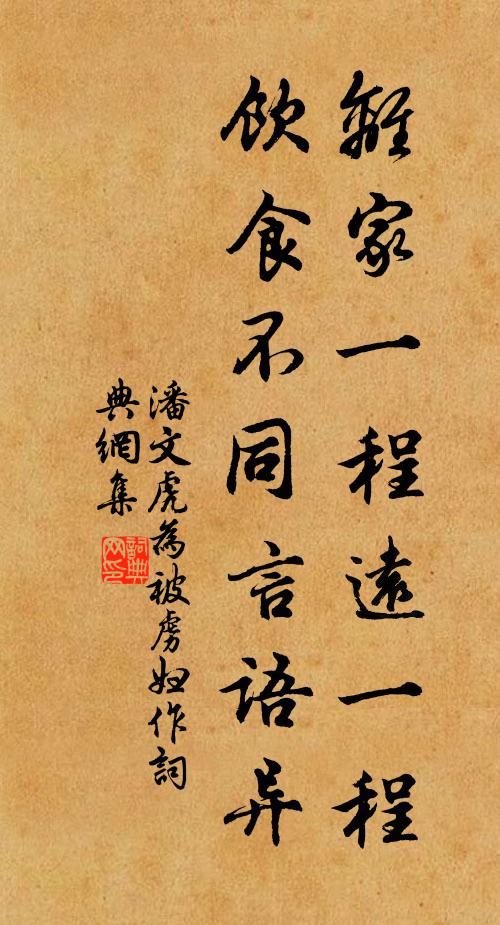 離家一程遠一程
飲食不同言語异
潘文虎為被虜妇作詞
典網集
詞典網印